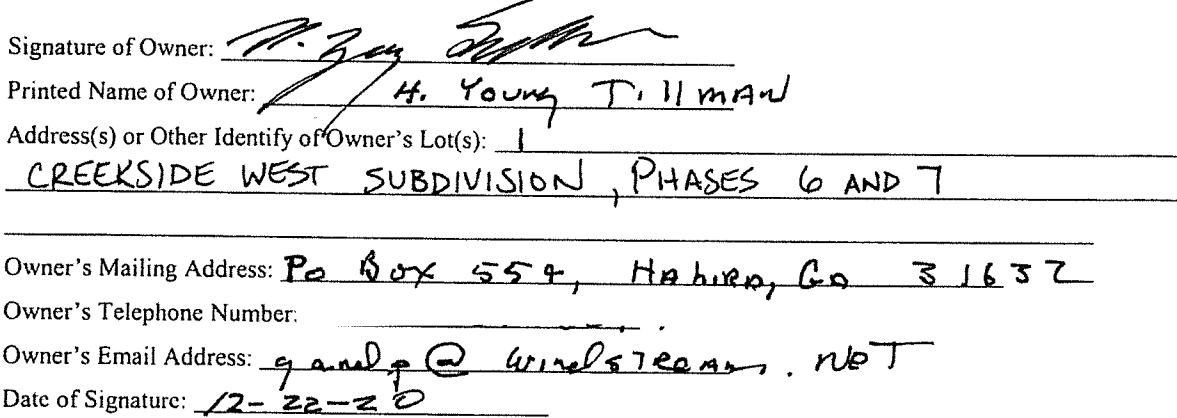 Signature of Owner:
Printed Name of Owner: H. Young Tillman
Address(s) or Other Identify of Owner's Lot(s): 1
CREEKSIDE WEST SUBDIVISION, PHASES 6 AND 7
Owner's Mailing Address: Po Box 554, Hahira, Ga 31632
Owner's Telephone Number:
Owner's Email Address: gandp@windstream.net
Date of Signature: 12-22-20